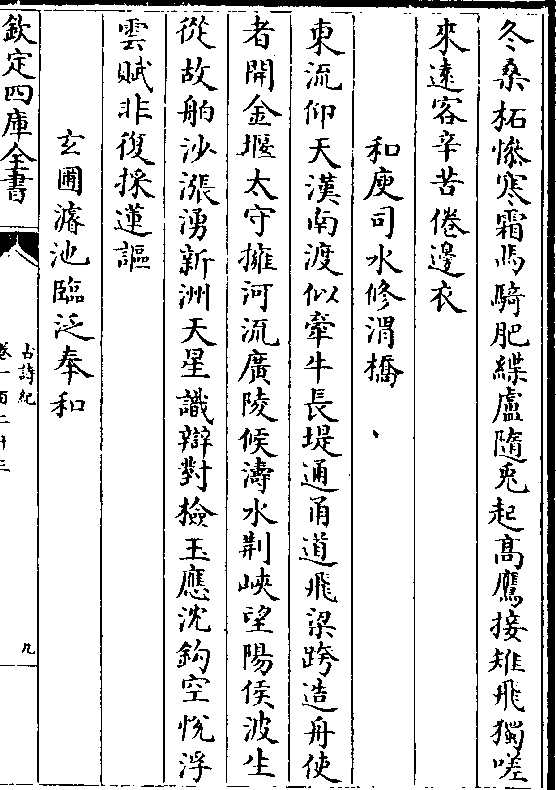 冬桑柘慘寒霜馬騎肥緤盧隨兎起高鷹接雉飛獨嗟
來逺客辛苦倦邊衣
和庾司水修渭橋
東流仰天漢南渡似牽牛長堤通甬道飛梁跨造舟使
者開金堰太守擁河流廣陵候濤水荆峽望陽侯波生
從故舶沙漲湧新洲天星識辯對檢玉應沈鈎空悅浮
雲賦非復採蓮謳
玄圃濬池臨泛奉和
欽定四庫全書
古詩紀
卷一百二十三
九